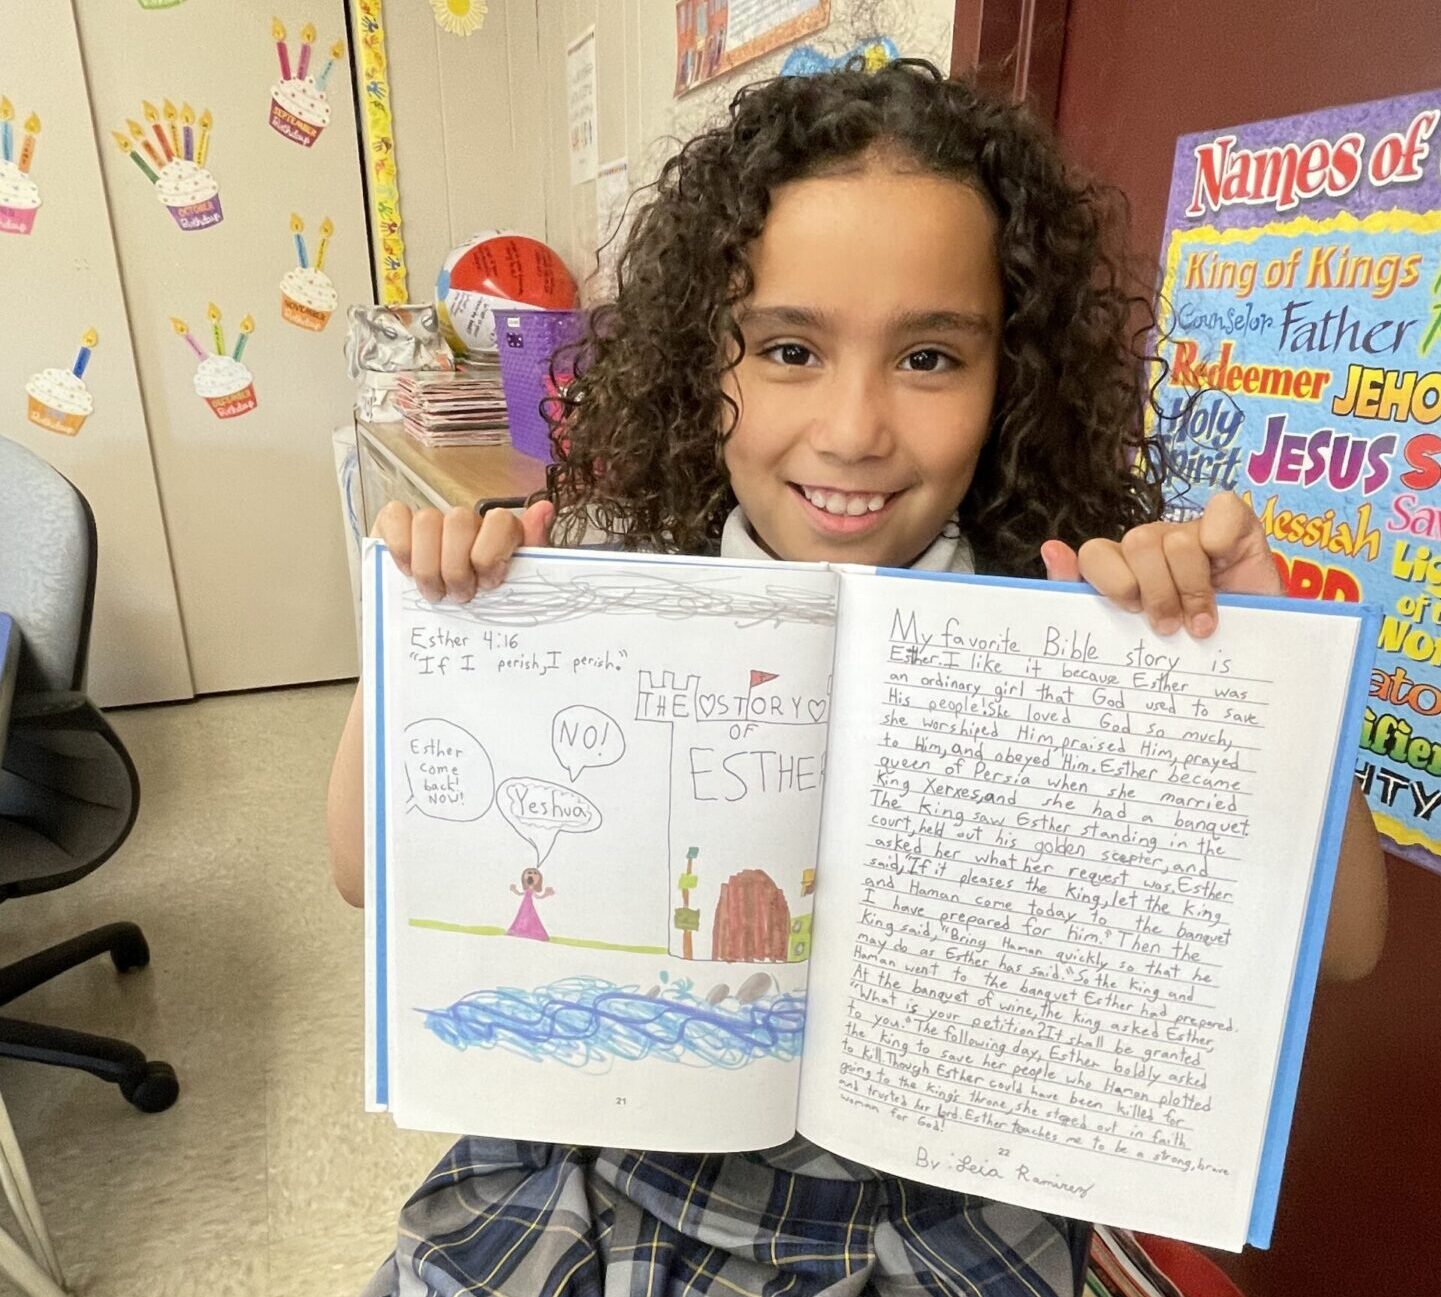 SEPTEMBER
Birthday
OCTOBER
Birthday
NOVEMBER
Birthday
DECEMBER
Birthday
Names of
King of Kings
Counselor Father
Redeemer JEHO
Holy
Spirit JESUS S
Messiah Sav
LORD Lig
of t
Wor
Esther 4:16
"If I perish, I perish."
THE ♡STORY♡
OF
ESTHE
Esther
come
back!
NOW!
NO!
Yeshua
21
My favorite Bible story is
Esther. I like it because Esther was
an ordinary girl that God used to save
His people! She loved God so much,
she worshiped Him, praised Him, prayed
to Him, and obeyed Him. Esther became
queen of Persia when she married
King Xerxes, and she had a banquet
The king saw Esther standing in the
court, held out his golden scepter, and
asked her what her request was. Esther
said, "If it pleases the king, let the king
and Haman come today to the banquet
I have prepared for him." Then the
king said, "Bring Haman quickly so that he
may do as Esther has said." So the king and
Haman went to the banquet Esther had prepared.
At the banquet of wine, the king asked Esther,
"What is your petition? It shall be granted
to you." The following day, Esther boldly asked
the king to save her people who Haman plotted
to kill. Though Esther could have been killed for
going to the king's throne, she stepped out in faith
and trusted her lord. Esther teaches me to be a strong, brave
woman for God!
22
By: Leia Ramirez